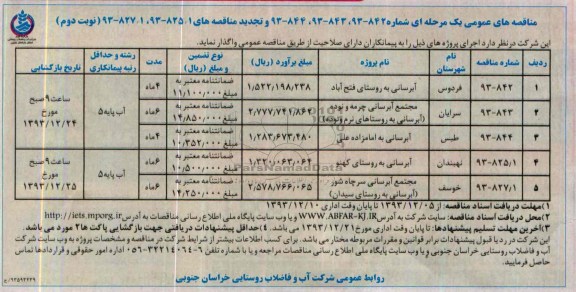 مناقصه های عمومی یک مرحله ای شماره ۸۴۲-۹۳، ۸۴۳-۹۳، ۸۴۴-۹۳ و تجدید مناقصه های ۸۲۵/۱-۹۳، ۸۲۷/۱-۹۳ (نوبت دوم)
این شرکت درنظر دارد اجرای پروژه های ذیل را به پیمانکاران دارای صلاحیت از طریق مناقصه عمومی واگذار نماید.
ردیف شماره مناقصه نام شهرستان نام پروژه مبلغ برآورد (ریال) نوع تضمین و مبلغ (ریال) مدت رشته و حداقل رتبه پیمانکاری تاریخ بازگشایی
۱ ۸۴۲-۹۳ فردوس آبرسانی به روستای فتح آباد ۱/۵۲۲/۱۹۸/۲۳۸ ضمانتنامه معتبر به مبلغ ۱۱/۱۰۰/۰۰۰ ۴ماه آب پایه۵ ساعت ۹صبح مورخ ۱۳۹۳/۱۲/۲۴
۲ ۸۴۳-۹۳ سرایان مجتمع آبرسانی چرمه و نوده (آبرسانی به روستاهای نرم و نوده) ضمانتنامه معتبر به مبلغ ۱۴/۸۵۰/۰۰۰ ۶ماه
۳ ۸۴۴-۹۳ طبس آبرسانی به امامزاده علی ۱/۲۸۳/۶۷۳/۴۸۰ ضمانتنامه معتبر به مبلغ ۱۰/۳۵۲/۰۰۰ ۴ماه
۴ ۸۲۵/۱-۹۳ نهبندان آبرسانی به روستای کهنو ۱/۳۲۰/۰۶۳/۰۶۴ ضمانتنامه معتبر به مبلغ ۱۰/۵۰۰/۰۰۰ ۶ماه آب پایه۵ ساعت ۹صبح مورخ ۱۳۹۳/۱۲/۲۵
۵ ۸۲۷/۱-۹۳ خوسف مجتمع آبرسانی سرچاه شور (آبرسانی به روستای سیدان) ۲/۵۷۸/۷۶۶/۰۶۵ ضمانتنامه معتبر به مبلغ ۱۴/۲۵۰/۰۰۰ ۶ماه
۱)مهلت دریافت اسناد مناقصه: از ۱۳۹۳/۱۲/۰۵ تا پایان وقت اداری ۱۳۹۳/۱۲/۱۰
۲)محل دریافت اسناد مناقصه: سایت شرکت به آدرس WWW.ABFAR-KJ.IR و یا وب سایت پایگاه ملی اطلاع رسانی مناقصات به آدرس http://iets.mporg.ir
۳)آخرین مهلت تسلیم پیشنهادها: تا پایان وقت اداری مورخ ۱۳۹۳/۱۲/۲۱ می باشد. ۴)حداقل پیشنهادات دریافتی جهت بازگشایی پاکت ها ۲ مورد می باشد.
این شرکت در رد یا قبول پیشنهادات برابر قوانین و مقررات مربوطه مختار می باشد. برای کسب اطلاعات بیشتر از شرایط شرکت در مناقصه و مشخصات پروژه به وب سایت شرکت آب و فاضلاب روستایی خراسان جنوبی و یا وب سایت پایگاه ملی اطلاع رسانی مناقصات مراجعه و یا با شماره تلفن ۶-۳۲۲۱۴۰۶۴-۰۵۶ اداره امور حقوقی و قراردادها تماس حاصل فرمایید.
روابط عمومی شرکت آب و فاضلاب روستایی خراسان جنوبی
ParsNamadData